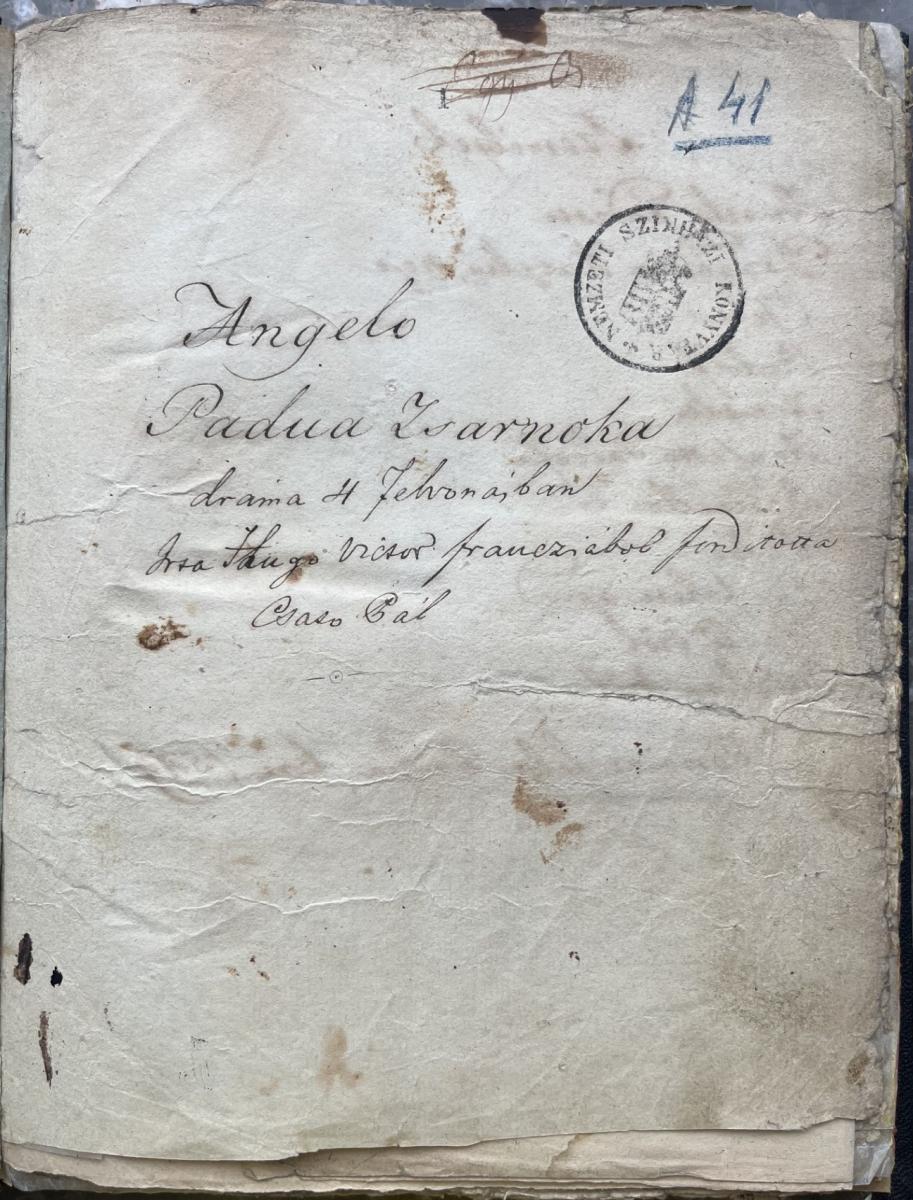 A 41
NEMZETI SZINHÁZI KÖNYVTÁR
Angelo
Padua Zsarnoka
dráma 4 felvonásban
Irta Hugo Victor francziábol forditotta
Csató Pál